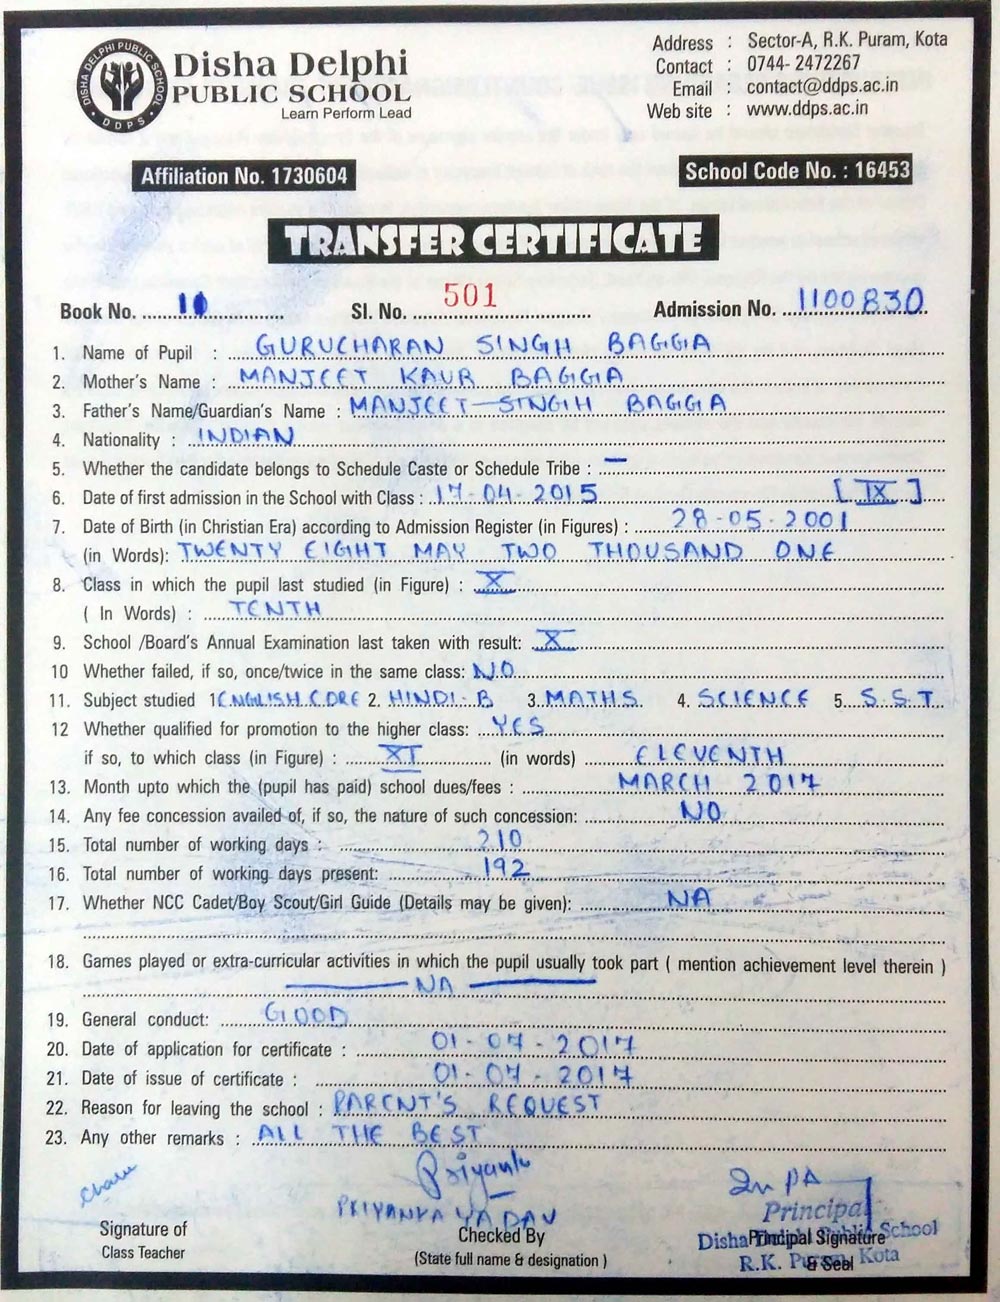 DISHA DELPHI PUBLIC SCHOOL
DDPS
Disha Delphi
PUBLIC SCHOOL
Learn Perform Lead
Address : Sector-A, R.K. Puram, Kota
Contact : 0744- 2472267
Email : contact@ddps.ac.in
Web site : www.ddps.ac.in
Affiliation No. 1730604
School Code No. : 16453
TRANSFER CERTIFICATE
Book No. 10 Sl. No. 501 Admission No. 1100830
1. Name of Pupil : GURUCHARAN SINGH BAGGA
2. Mother's Name : MANJEET KAUR BAGGA
3. Father's Name/Guardian's Name : MANJEET SINGH BAGGA
4. Nationality : INDIAN
5. Whether the candidate belongs to Schedule Caste or Schedule Tribe : —
6. Date of first admission in the School with Class : 17-04-2015 [IX]
7. Date of Birth (in Christian Era) according to Admission Register (in Figures) : 28-05-2001
(in Words): TWENTY EIGHT MAY TWO THOUSAND ONE
8. Class in which the pupil last studied (in Figure) : X
( In Words) : TENTH
9. School /Board's Annual Examination last taken with result: X
10 Whether failed, if so, once/twice in the same class: NO
11. Subject studied 1 ENGLISH CORE 2. HINDI-B 3. MATHS 4. SCIENCE 5. S.S.T
12 Whether qualified for promotion to the higher class: YES
if so, to which class (in Figure) : XI (in words) ELEVENTH
13. Month upto which the (pupil has paid) school dues/fees : MARCH 2017
14. Any fee concession availed of, if so, the nature of such concession: NO
15. Total number of working days : 210
16. Total number of working days present: 192
17. Whether NCC Cadet/Boy Scout/Girl Guide (Details may be given): NA
18. Games played or extra-curricular activities in which the pupil usually took part ( mention achievement level therein )
NA
19. General conduct: GOOD
20. Date of application for certificate : 01-07-2017
21. Date of issue of certificate : 01-07-2017
22. Reason for leaving the school : PARENT'S REQUEST
23. Any other remarks : ALL THE BEST
Priyanka
PRIYANKA YADAV
Signature of
Class Teacher
Checked By
(State full name & designation )
Principal
Disha Delphi Public School
R.K. Puram, Kota
Principal Signature
& Seal